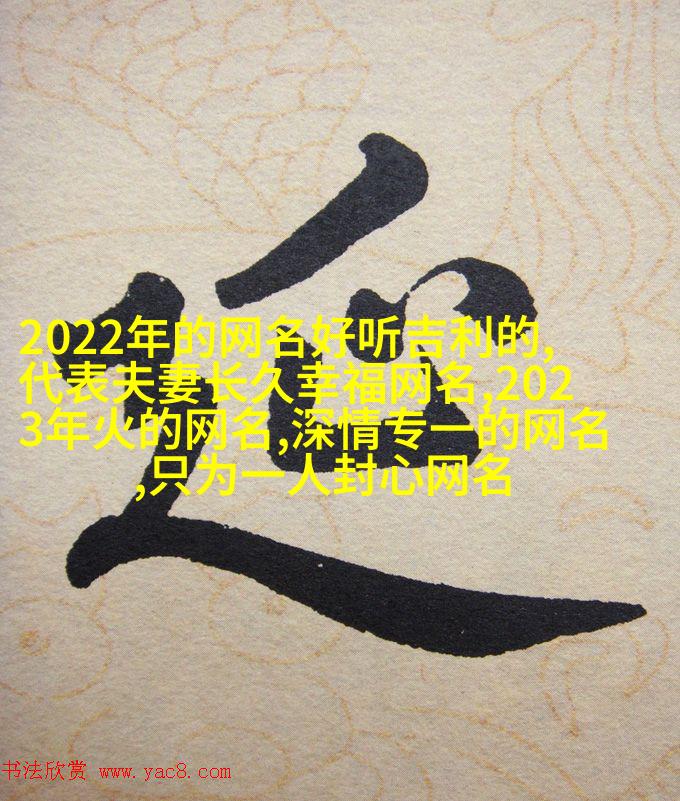 2022年的网名好听吉利的,
代表夫妻长久幸福网名,202
3年火的网名,深情专一的网名
,只为一人封心网名
书法欣赏 www.yac8.com